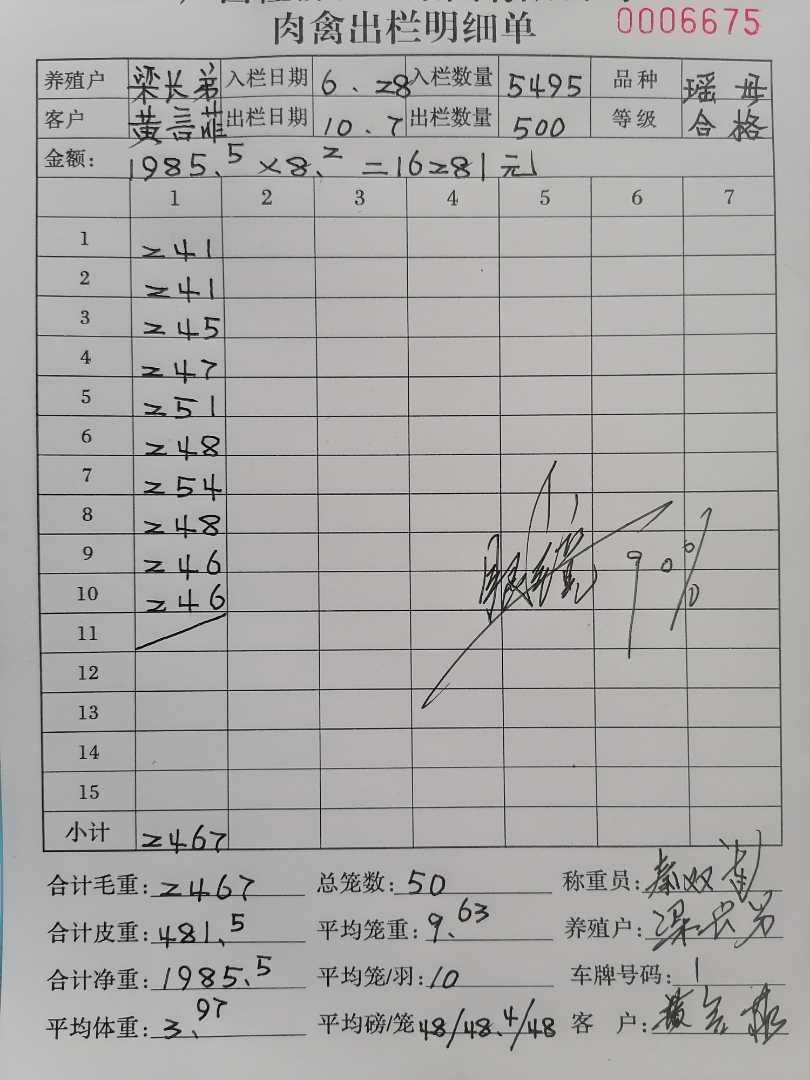 肉禽出栏明细单 0006675
养殖户 梁长弟 入栏日期 6.28 入栏数量 5495 品种 瑶母
客户 黄言菲 出栏日期 10.7 出栏数量 500 等级 合格
金额: 1985.5×8.2=16281元
1 2 3 4 5 6 7
1 241
2 241
3 245
4 247
5 251
6 248
7 254
8 248
9 246
10 246
90%
11
12
13
14
15
小计 2467
合计毛重: 2467 总笼数: 50 称重员:
合计皮重: 481.5 平均笼重: 9.63 养殖户: 梁长弟
合计净重: 1985.5 平均笼/羽: 10 车牌号码: 1
平均体重: 3.97 平均磅/笼 48/48.4/48 客户: